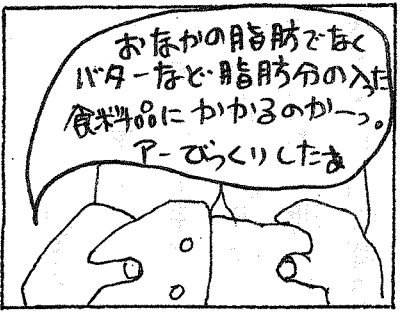 おなかの脂肪でなく
バターなど脂肪分の入った
食料品にかかるのかーっ。
アーびっくりしたぁ